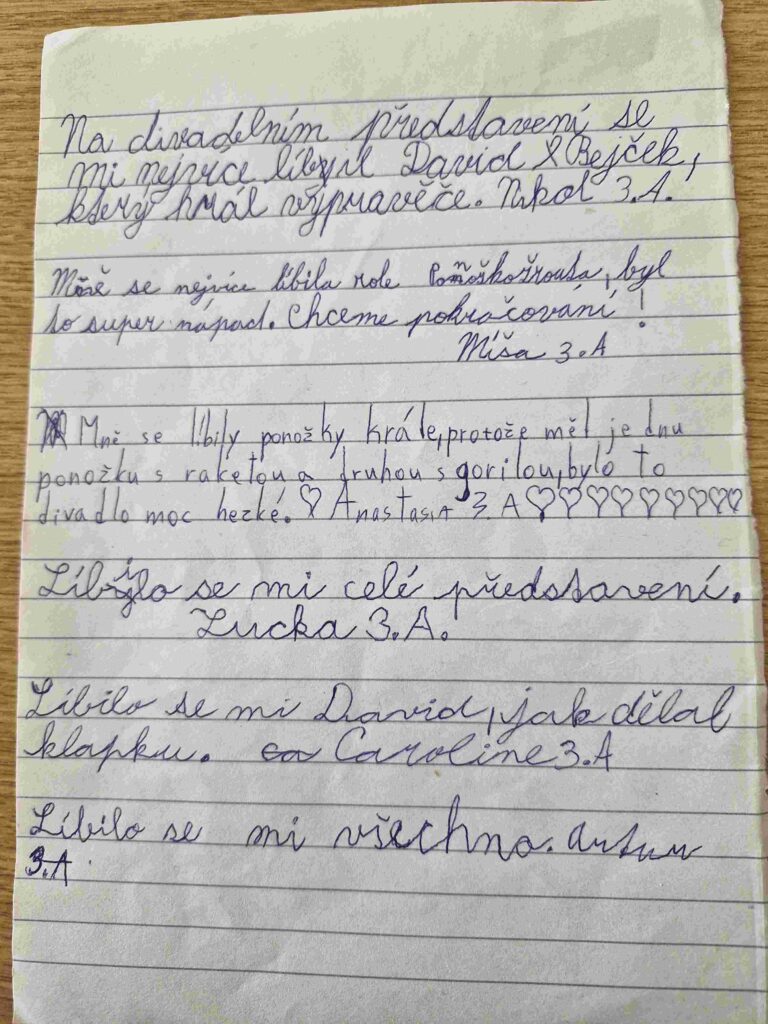 Na divadelním představení se
mi nejvíce líbil David Bejček,
který hrál vypravěče. Nikol 3.A.
Mně se nejvíce líbila role Ponožkožrouta, byl
to super nápad. Chceme pokračování!
Míša 3.A
Mně se líbily ponožky krále, protože měl jednu
ponožku s raketou a druhou s gorilou, bylo to
divadlo moc hezké. ♡ Anastasia 3.A ♡♡♡♡♡♡♡♡♡
Líbilo se mi celé představení.
Lucka 3.A.
Líbilo se mi David, jak dělal
klapku. Caroline 3.A
Líbilo se mi všechno. Artur
3.A